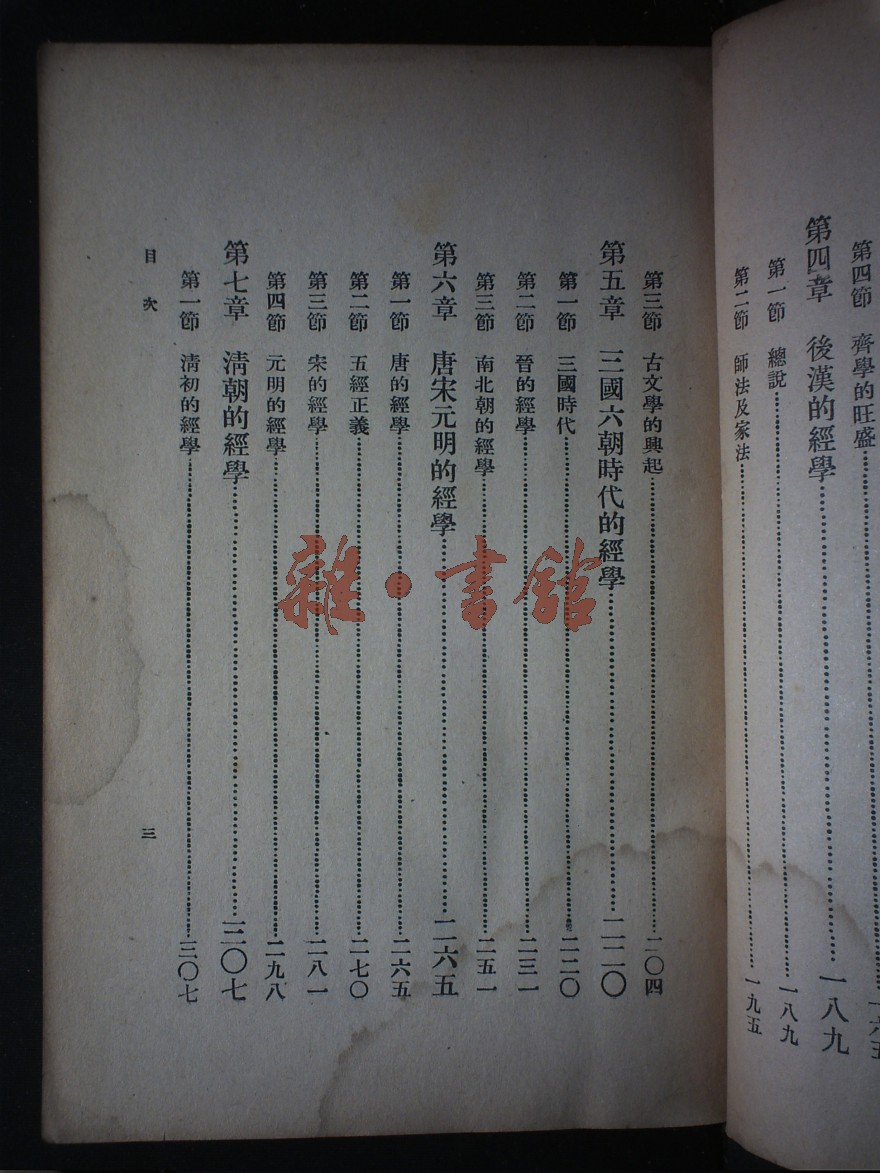 第四節 齊學的旺盛
第四章 後漢的經學 一八九
第一節 總說 一八九
第二節 師法及家法 一九五
第三節 古文學的興起 二〇四
第五章 三國六朝時代的經學 二二〇
第一節 三國時代 二二〇
第二節 晉的經學 二三一
第三節 南北朝的經學 二五一
第六章 唐宋元明的經學 二六五
第一節 唐的經學 二六五
第二節 五經正義 二七〇
第三節 宋的經學 二八一
第四節 元明的經學 二九八
第七章 清朝的經學 三〇七
第一節 清初的經學 三〇七
目次
三
雜·書館